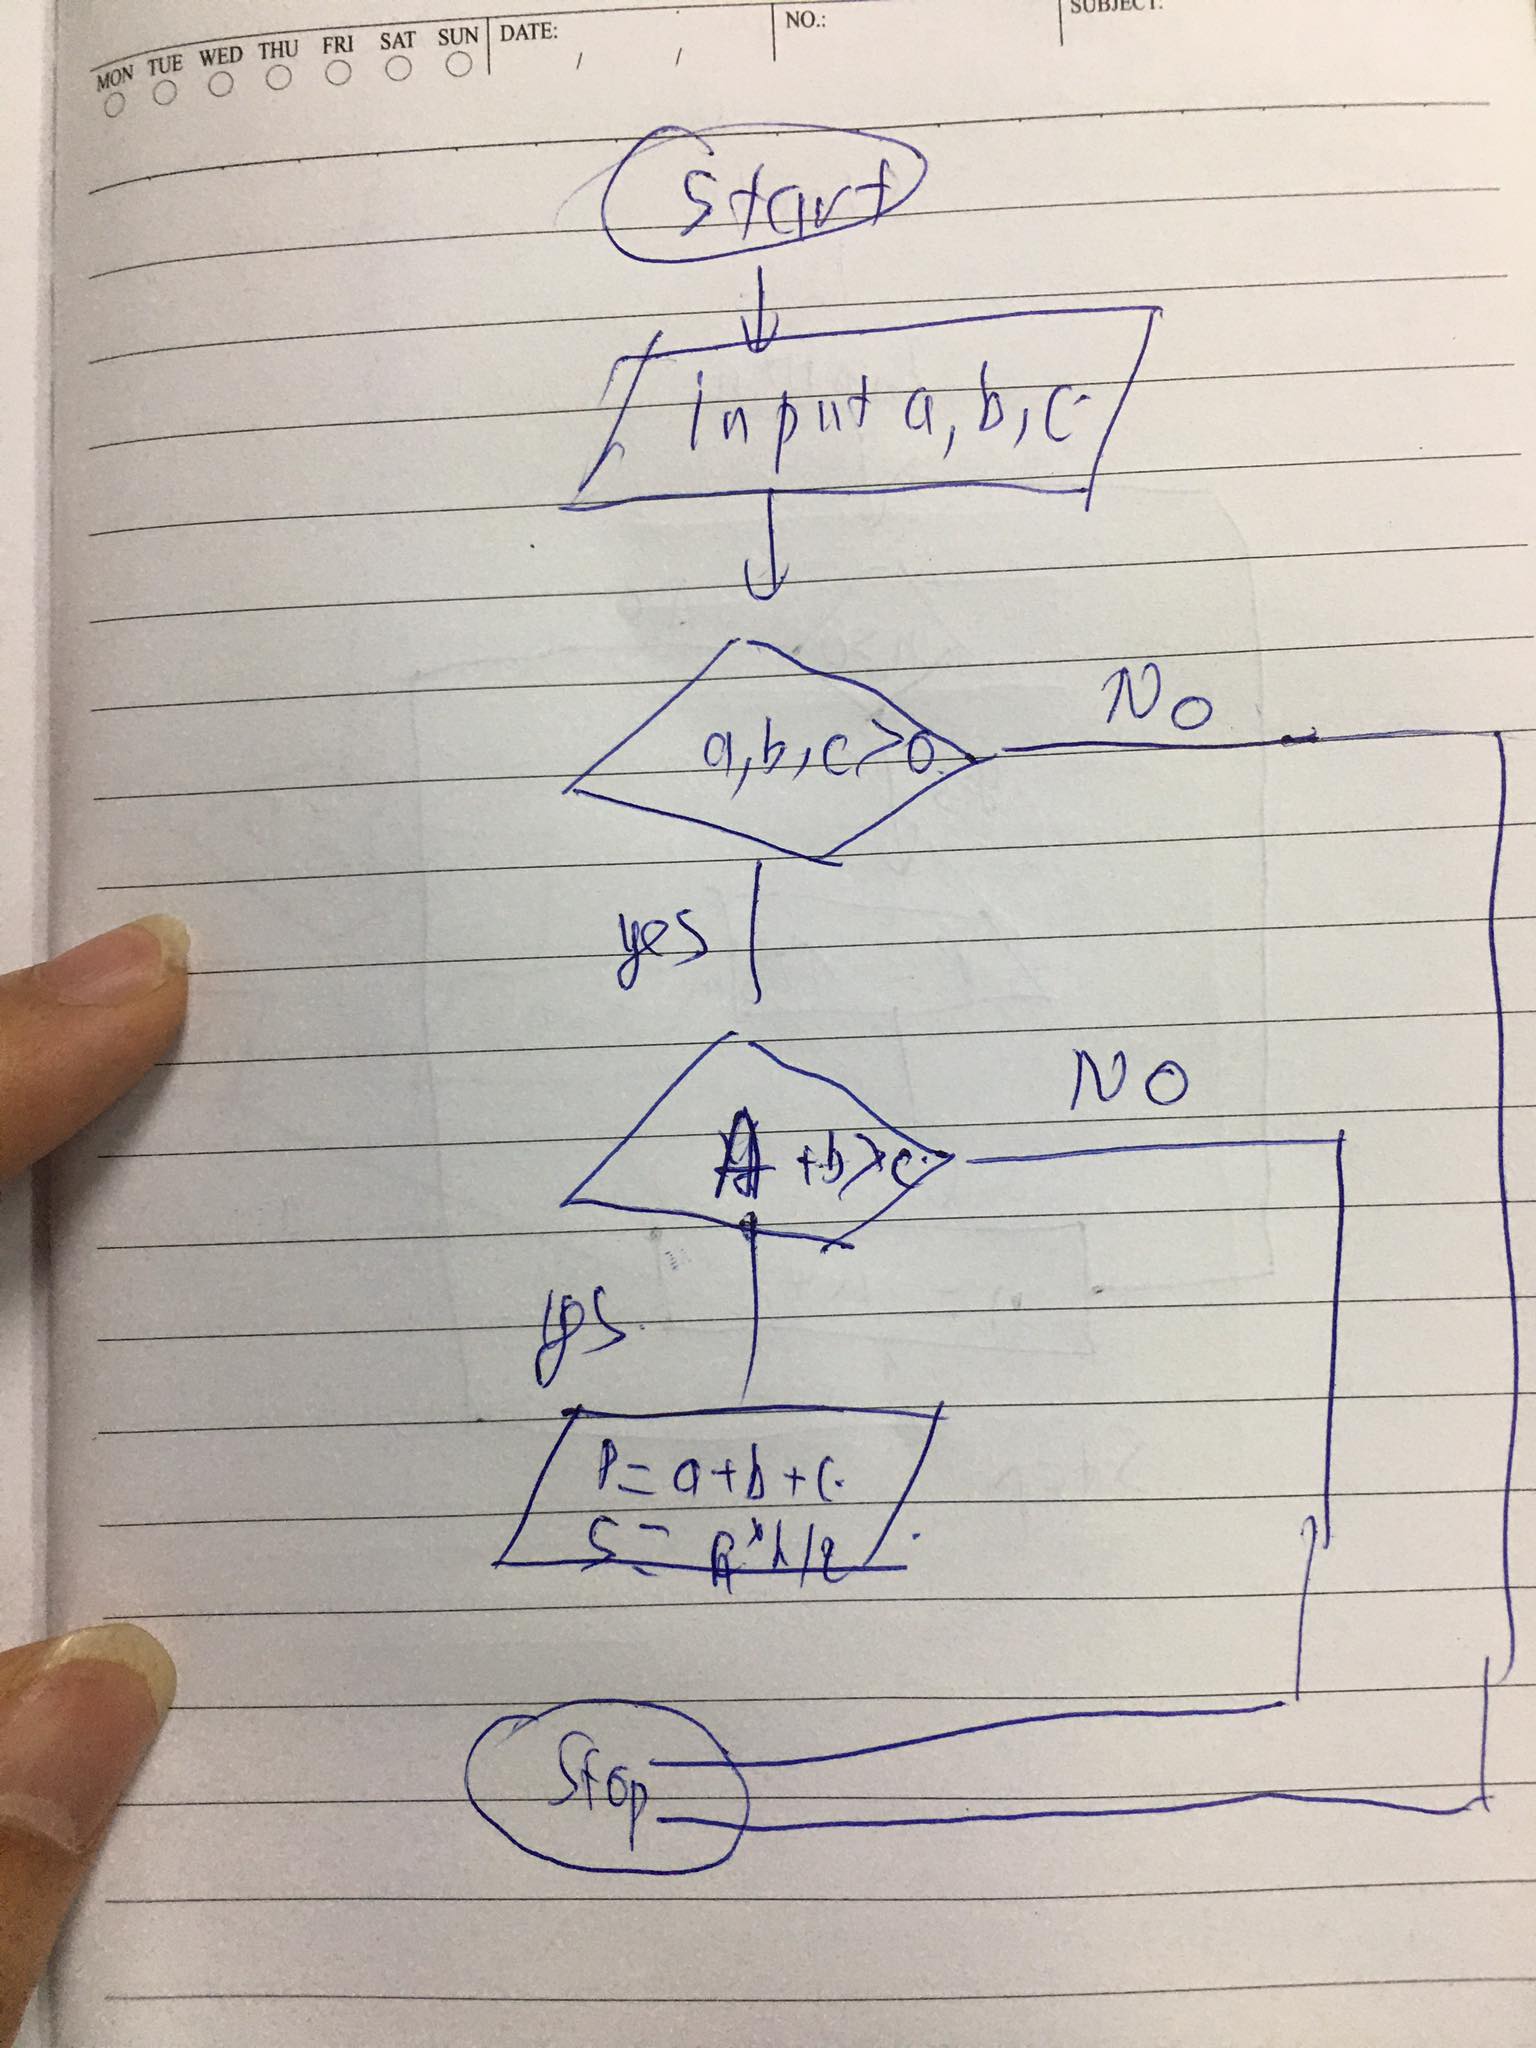 MON TUE WED THU FRI SAT SUN DATE: / / NO.: SUBJECT:
Start
input a, b, c
a, b, c > 0
No
yes
A + b > c
NO
yes
P = a + b + c
Stop